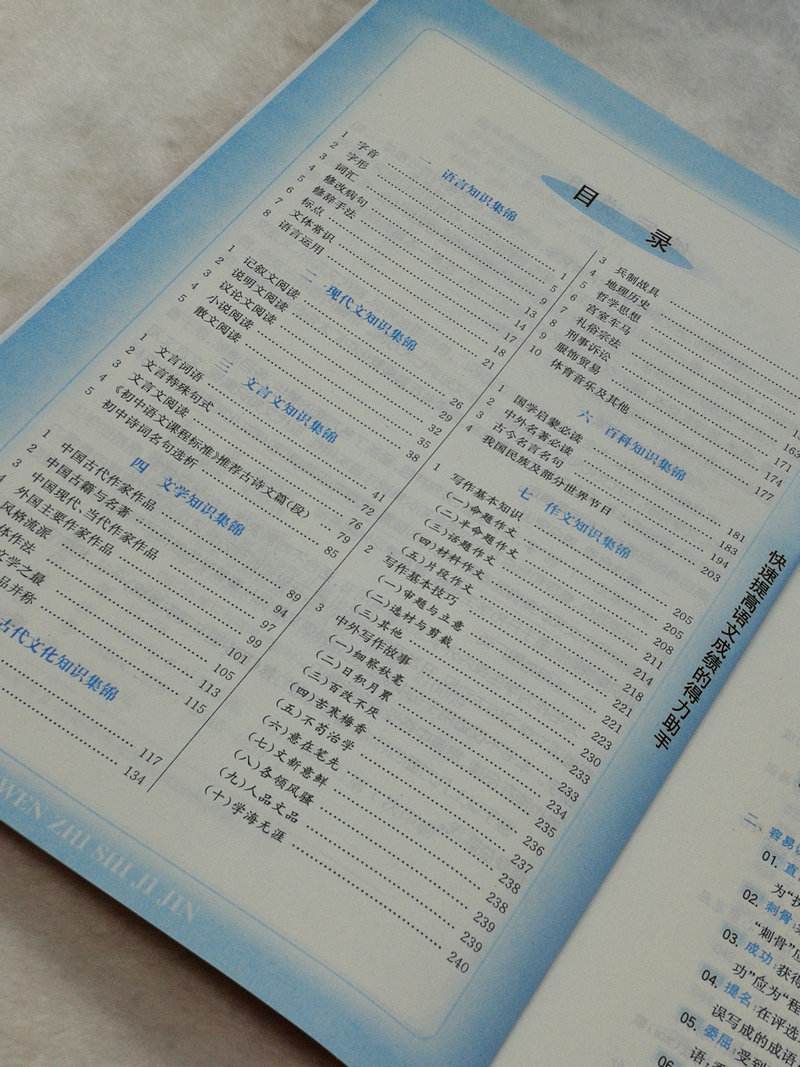 目录
一 语言知识集锦
1 字音 1
2 字形 5
3 词汇 9
4 修改病句 13
5 修辞手法 14
6 标点 17
7 文体常识 18
8 语言运用 21
二 现代文知识集锦
1 记叙文阅读 26
2 说明文阅读 29
3 议论文阅读 32
4 小说阅读 35
5 散文阅读 38
三 文言文知识集锦
1 文言词语 41
2 文言特殊句式 72
3 文言文阅读 76
4 《初中语文课程标准》推荐古诗文篇(段) 79
5 初中诗词名句选析 85
四 文学知识集锦
1 中国古代作家作品 89
2 中国古籍与名著 94
3 中国现代、当代作家作品 97
4 外国主要作家作品 99
风格流派 101
体作法 105
文学之最 113
品并称 115
古代文化知识集锦
117
134
3 兵制战具
4 地理历史
5 哲学思想
6 宫室车马
7 礼俗宗法 163
8 刑事诉讼 171
9 服饰贸易 174
10 体育音乐及其他 177
六 百科知识集锦
1 国学启蒙必读 181
2 中外名著必读 183
3 古今名言名句 194
4 我国民族及部分世界节日 203
七 作文知识集锦
1 写作基本知识 205
(一)命题作文 205
(二)半命题作文 208
(三)话题作文 211
(四)材料作文 214
(五)片段作文 218
2 写作基本技巧 221
(一)审题与立意 221
(二)选材与剪裁 223
(三)其他 230
3 中外写作故事 233
(一)细察秋毫 233
(二)日积月累 234
(三)百改不厌 235
(四)苦寒梅香 236
(五)不苟治学 237
(六)意在笔先 238
(七)文新意鲜 238
(八)各领风骚 239
(九)人品文品 239
(十)学海无涯 240
WEN ZHI SHI JI JIN
快速提高语文成绩的得力助手
二、容易
01. 直
为“执
02. 刺骨:
“刺骨”应
03. 成功:获得
功”应为“程
04. 提名:在评选
误写成的成语
05. 委屈:受到
语;看
06